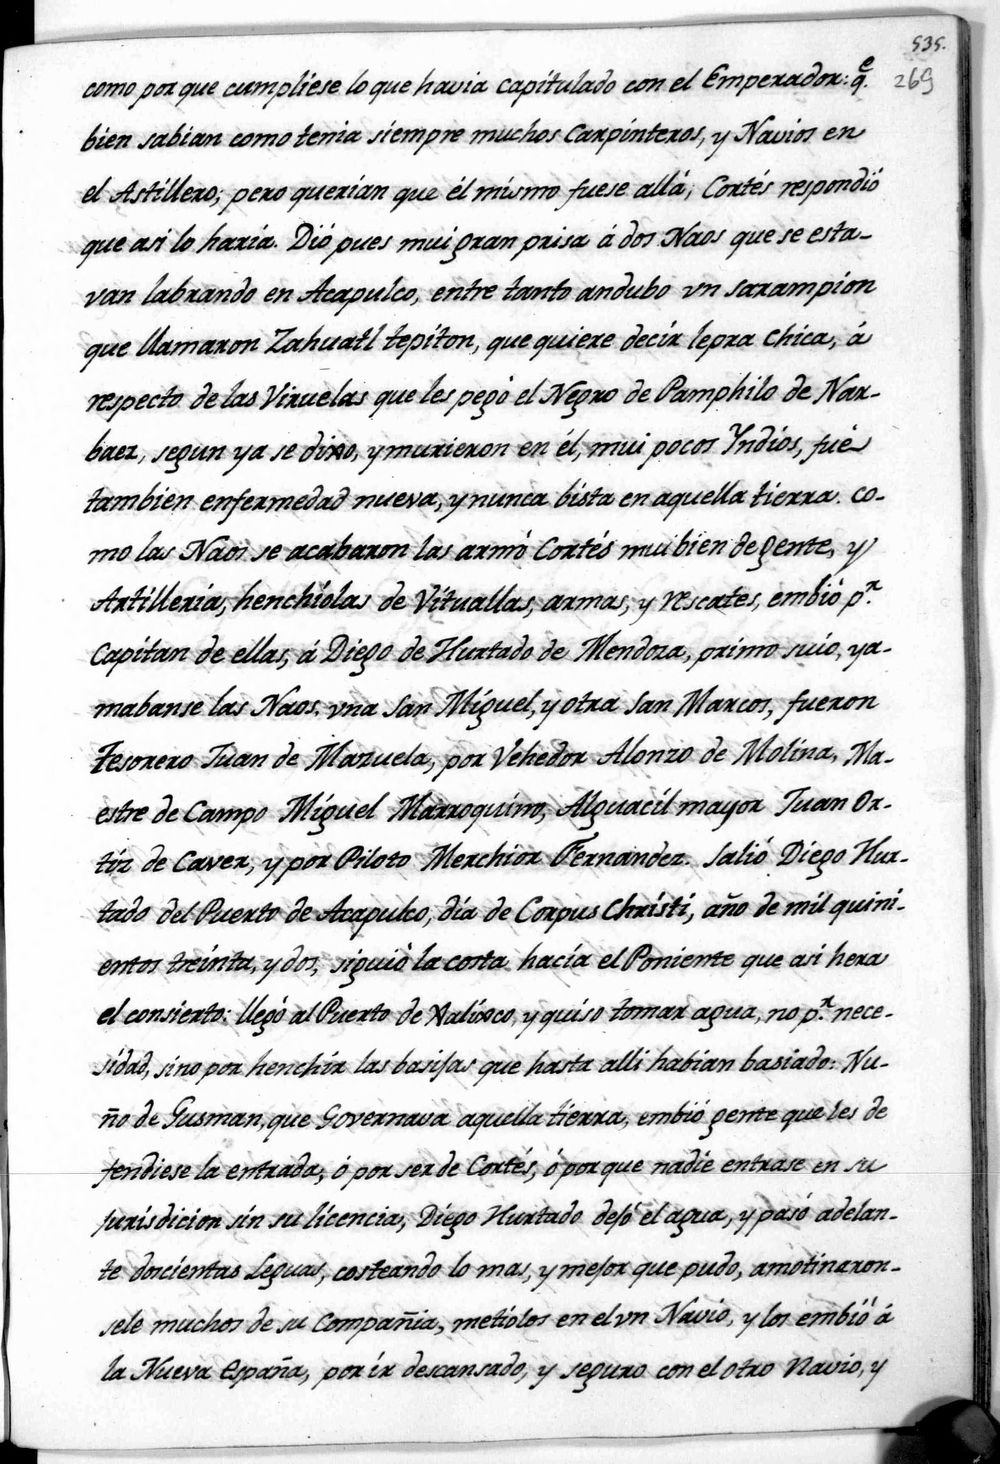 535.
269
como por que cumpliese lo que havia capitulado con el Emperador: q.e
bien sabian como tenia siempre muchos Carpinteros, y Navios en
el Astillero; pero querian que él mismo fuese allá, Cortés respondió
que asi lo haria. Dió pues mui gran prisa á dos Naos que se esta-
van labrando en Acapulco, entre tanto andubo vn sarampion
que llamaron Zahuatl tepiton, que quiere decir lepra chica, á
respecto de las Viruelas que les pegó el Negro de Pamphilo de Nar-
baez, segun ya se dixo, y murieron en él, mui pocos Yndios, fué
tambien enfermedad nueva, y nunca bista en aquella tierra. co-
mo las Naos se acabaron las armó Cortés mui bien de gente, y
Artilleria, henchiólas de Vituallas, armas, y rescates, embió p.r
Capitan de ellas, á Diego de Hurtado de Mendoza, primo suio, ya-
mabanse las Naos. vna San Miguel, y otra San Marcos, fueron
Tesorero Juan de Mazuela, por Vehedor Alonzo de Molina, Ma-
estre de Campo Miguel Marroquino, Alguacil mayor Juan Or-
tíz de Caver, y por Piloto Merchior Fernandez. Salió Diego Hur-
tado del Puerto de Acapulco, dia de Corpus Christi, año de mil quini-
entos treinta, y dos, siguió la costa hacia el Poniente que asi hera
el consierto: llegó al Puerto de Xalixco, y quiso tomar agua, no p.r nece-
sidad, sino por henchir las basijas que hasta alli habian basiado: Nu-
ño de Gusman, que Governava aquella tierra, embió gente que les de
fendiese la entrada, ó por ser de Cortés, ó por que nadie entrase en su
jurisdicion sin su licencia, Diego Hurtado dejó el agua, y pasó adelan-
te docientas Leguas, costeando lo mas, y mejor que pudo, amotinaron-
sele muchos de su Compañia, metiólos en el vn Navio, y los embió á
la Nueva España, por ir descansado, y seguro con el otro Navio, y